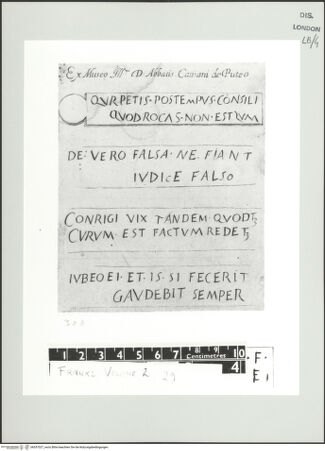 DIS.
LONDON
LB/4
Ex Museo Illmi D Abbatis Camani de Puteo
QVR PETIS · POSTEMPVS · CONSILI
QVOD ROCAS · NON · EST VM
DE · VERO FALSA · NE · FIANT
IVDICE FALSO
CONRIGI VIX TANDEM QVOD
CVRVM · EST FACTVM REDE
IVBEO EI · ET · IS · SI FECERIT
GAVDEBIT SEMPER
1 2 3 4 5 6 7 8 9 10
Centimetres
4
F
E
FRANKS VOLUME 2 29